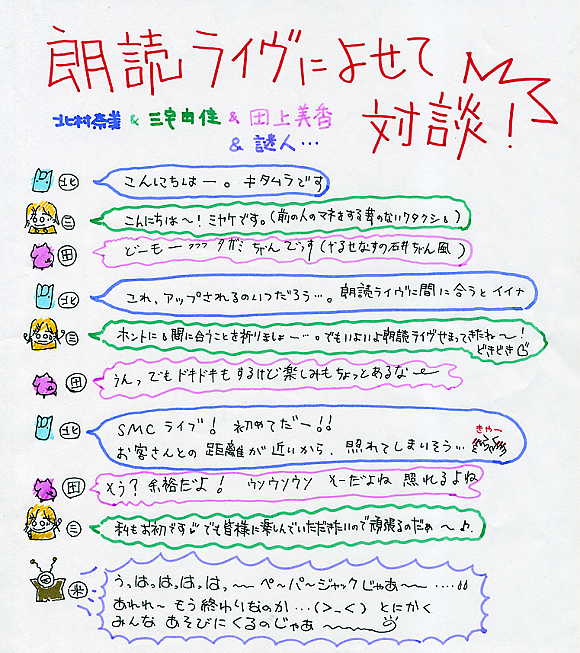 朗読ライヴによせて
対談!
北村奈美 & 三宅由佳 & 田上美香
& 謎人…
北 こんにちはー。キタムラです
三 こんにちは〜!ミヤケです。(前の人のマネをする芸のないワタクシ)
田 どーもー ワワワ タガミ ちゃんでぇす(やるせなすの石井ちゃん風)
北 これ、アップされるのいつだろう…。朗読ライヴに間に合うとイイナ
三 ホントにも間に合うことを祈りましょー…。でもいよいよ朗読ライヴせまってきたね〜!
どきどき
田 うんっ でもドキドキもするけど楽しみもちょっとあるな〜
北 SMCライブ! 初めてだー!!
きゃー
お客さんとの距離が近いから、照れてしまいそう…
田 そう?余裕だよ! ウソウソウソ そーだよね 照れるよね
三 私もお初です でも皆様に楽しんでいただきたいので頑張るのだぁ〜♪
米 うっはっはっはっはっ〜 ペ〜パ〜ジャックじゃあ〜 ……!!
あれれ〜 もう終わりなのか…(>_<) とにかく
みんな あそびにくるのじゃぁ〜